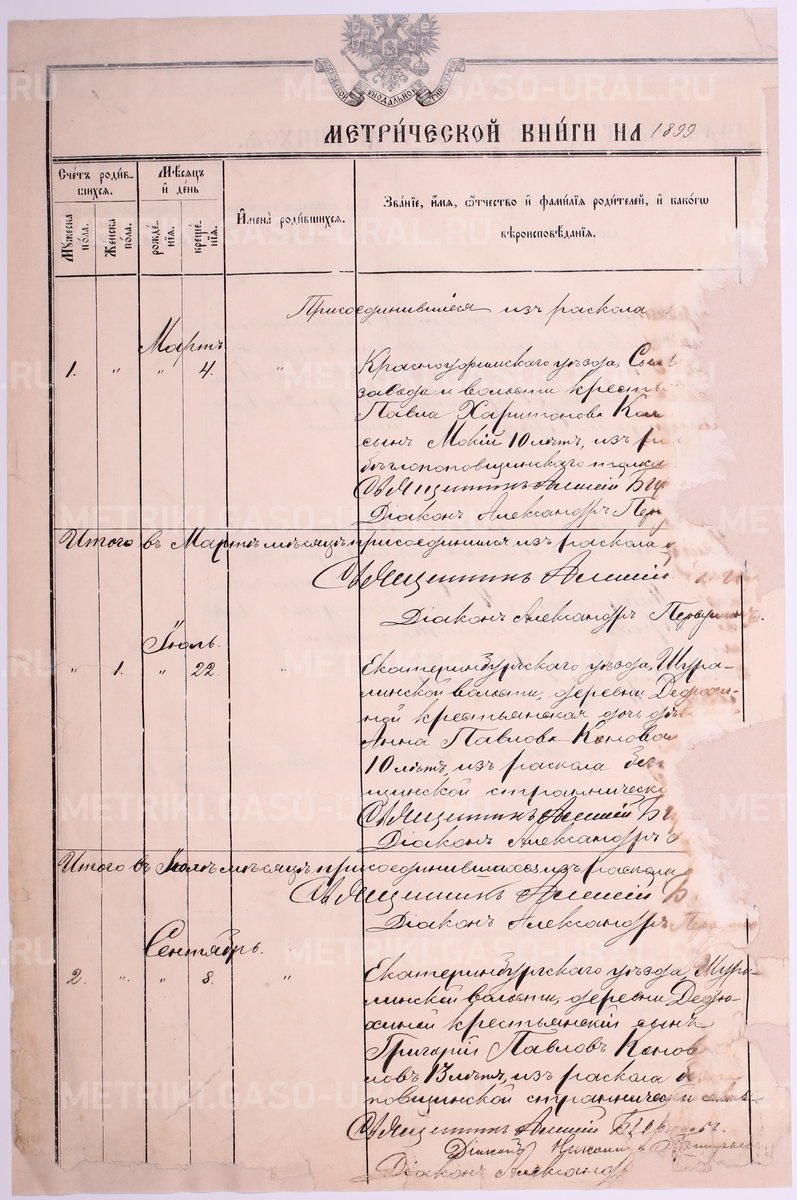 МЕТРИ́ЧЕСКОЙ КНИ́ГИ НА 1899
Счéтъ роди́в-
шихся.
Мѣ́сяцъ
и де́нь
Имена̀ роди́вшихся.
Зва́нїе, и́мя, ѻ́тчество и фами́лїя роди́телей, и како́гѡ
вѣроисповѣ́данїя.
Мꙋ́жеска
по́ла.
Же́нска
по́ла.
рожде́-
нїя.
креще́-
нїя.
Присоединившіеся изъ раскола
Мартъ
1. " " 4. "
Красноуфимскаго уѣзда, Сы
завода и волости кресть
Павла Харитонова Ко
сынъ Мокій 10 лѣтъ, изъ ра
бѣглопоповщинскаго толка
Священникъ Алексій
Діаконъ Александръ Пер
Итого въ Мартѣ мѣсяцѣ присоединился изъ раскола
Священникъ Алексій
Діаконъ Александръ
Іюль.
" 1. " 22. "
Екатеринбургскаго уѣзда, Шура-
линской волости, деревни Дедюхи-
ной крестьянская дочь
Анна Павлова Конова
10 лѣтъ, изъ раскола безпо
щинской странническ
Священникъ Алексій
Діаконъ Александръ
Итого въ Іюлѣ мѣсяцѣ присоединившихся изъ раскола
Священникъ Алексій
Діаконъ Александръ
Сентябрь.
2. " " 8. "
Екатеринбургскаго уѣзда, Шура-
линской волости, деревни Дедю-
хиной крестьянскій сынъ
Григорій Павловъ Конова
ловъ 13 лѣтъ, изъ раскола без
повщинской страннической секты
Священникъ Алексій
Діаконъ
Діаконъ Александр
METRIKI.GASO-URAL.RU